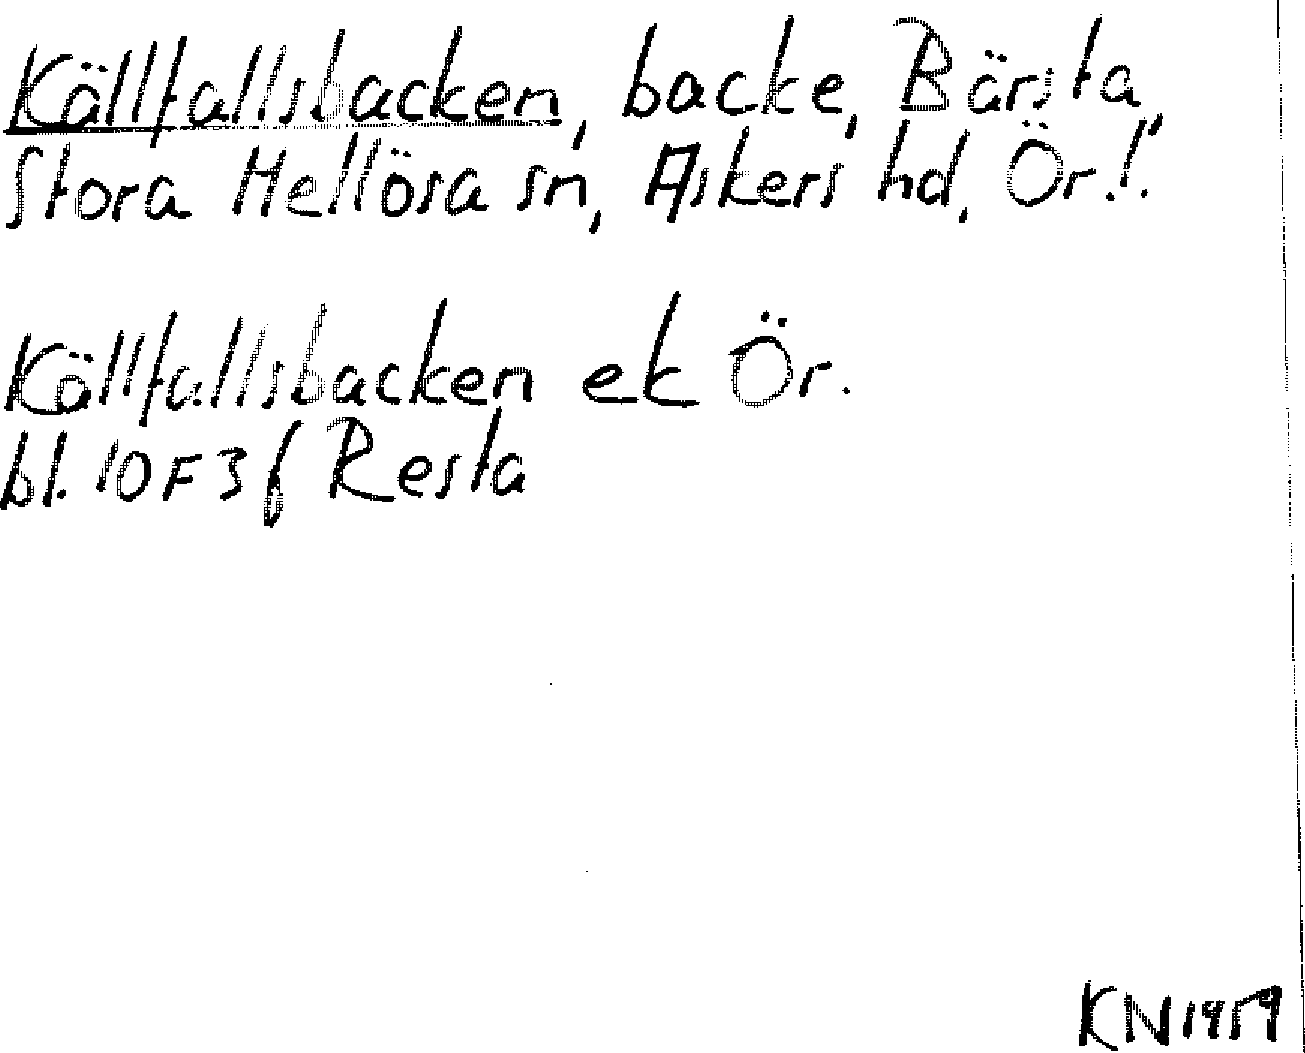 Källfallsbacken, backe, Bärsta,
Stora Mellösa sn, Askers hd, Ör.l.
Källfallsbacken ek Ör.
bl. 10F3f Resta
KN 1959